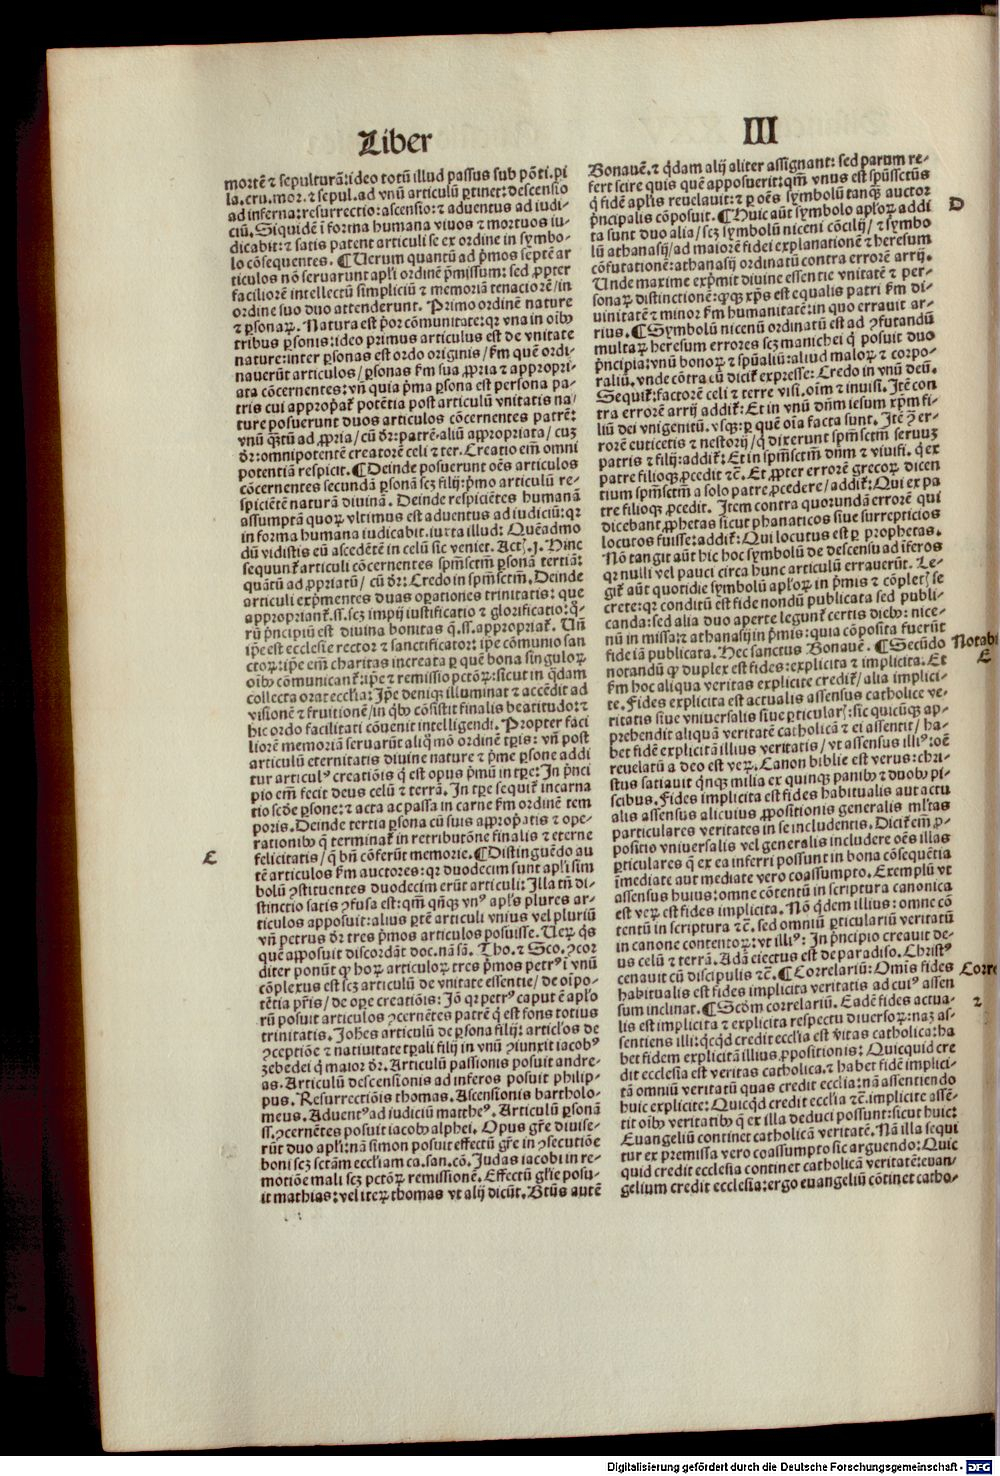 Liber
III
mortē ⁊ sepulturā: ideo totū illud passus sub pōti. pi
la. cru. mor. ⁊ sepul. ad vnū articulū ꝑtinet: descensio
ad inferna: resurrectio: ascensio: ⁊ aduentus ad iudi-
ciū. Siquidē ī forma humana viuos ⁊ mortuos iu-
dicabit: ⁊ satis patent articuli se ex ordine in symbo-
lo cōsequentes. ¶ Uerum quantū ad p̄mos septē ar
ticulos nō seruarunt apl̄i ordinē p̄missum: sed ꝓpter
faciliorē intellectū simpliciū ⁊ memoriā tenaciorē / in
ordine suo duo attenderunt. Primo ordinē nature
⁊ ꝑsonaꝝ. Natura est p̄or cōmunitate: qꝛ vna in oībꝰ
tribus ꝑsonis: ideo primus articulus est de vnitate
nature: inter ꝑsonas est ordo originis / ẜm quē ordi-
nauerūt articulos / ꝑsonas ẜm sua ꝓpria ⁊ appropri-
ata cōcernentes: vn̄ quia p̄ma ꝑsona est persona pa-
tris cui approp̄at᷑ potētia post articulū vnitatis na/
ture posuerunt duos articulos cōcernentes patrē:
vnū q̄ꝫtū ad ꝓpria / cū dr̄: patrē. aliū appropriata / cuꝫ
dr̄: omnipotentē creatorē celi ⁊ ter. Creatio em̄ omni
potentiā respicit. ¶ Deinde posuerunt oēs articulos
cōcernentes secundā ꝑsonā scꝫ filij: p̄mo articulū re-
spiciētē naturā diuinā. Deinde respiciētes humanā
assumptā quoꝝ vltimus est aduentus ad iudiciū: qꝛ
in forma humana iudicabit. iuxta illud: Quēadmo
dū vidistis eū ascēdētē in celū sic veniet. Act. j. Hinc
sequunt᷑ articuli cōcernentes spm̄sctm̄ ꝑsonā tertiā:
quātū ad ꝓpriatū / cū dr̄: Credo in spm̄sctm̄. Deinde
articuli exp̄mentes duas oꝑationes trinitatis: que
appropriant᷑. ſſ. scꝫ impij iustificatio ⁊ glorificatio: q̄-
rū p̄ncipiū est diuina bonitas q̄. ſſ. appropriat᷑. Un̄
ip̄e est ecclesie rector ⁊ sanctificator: ip̄e cōmunio san
ctoꝝ: ip̄e em̄ charitas increata ꝑ quē bona singuloꝝ
oībꝰ cōmunicant᷑: ip̄e ⁊ remissio pctōꝝ: sicut in q̄dam
collecta orat eccl̄ia: Ip̄e deniqꝫ illuminat ⁊ accēdit ad
visionē ⁊ fruitionē / in q̄bꝰ cōsistit finalis beatitudo: ⁊
hic ordo facilitati cōuenit intelligendi. Propter faci
liorē memoriā seruarūt aliq̄ mō ordinē tꝑis: vn̄ post
articulū eternitatis diuine nature ⁊ p̄me ꝑsone addi
tur articulꝰ creatiōis q̄ est opus p̄mū in tꝑe: In p̄nci
pio em̄ fecit deus celū ⁊ terrā. In tꝑe sequit᷑ incarna
tio scd̄e ꝑsone: ⁊ acta ac passa in carne ẜm ordinē tem
poris. Deinde tertia ꝑsona cū suis approp̄atis ⁊ ope-
rationibꝰ q̄ terminat᷑ in retributōne finalis ⁊ eterne
felicitatis / q̄ bn̄ cōferūt memorie. ¶ Distinguēdo au
tē articulos ẜm auctores: qꝛ duodecim sunt apl̄i sim
bolū ꝯstituentes duodecim erūt articuli: Illa tn̄ di-
stinctio satis ꝯfusa est: qm̄ qn̄qꝫ vnꝰ apl̄s plures ar-
ticulos apposuit: alius ꝑtē articuli vnius vel pluriū
vn̄ petrus dr̄ tres p̄mos articulos posuisse. Ueꝝ q̄s
quē apposuit discordāt doc. nā sā. Tho. ⁊ Sco. ꝯcor
diter ponūt ꝙ hoꝝ articuloꝝ tres p̄mos petrꝰ ī vnū
cōplexus est scꝫ articulū de vnitate essentie / de oīpo-
tētia pr̄is / de oꝑe creatiōis: Jō qꝛ petrꝰ caput ē apl̄o
rū posuit articulos ꝯcernētes patrē q̄ est fons totius
trinitatis. Joh̄es articulū de ꝑsona filij: articl̄os de
ꝯceptiōe ⁊ natiuitate tꝑali filij in vnū ꝯiunxit iacobꝰ
zebedei q̄ maior dr̄. Articulū passionis posuit andre-
as. Articulū descensionis ad inferos posuit philip-
pus. Resurrectiōis thomas. Ascensionis bartholo-
meus. Aduentꝰ ad iudiciū mattheꝰ. Articulū ꝑsonā
ſſ. ꝯcernētes posuit iacobꝰ alphei. Opus gr̄e diuise-
rūt duo apl̄i: nā simon posuit effectū gr̄e in ꝯsecutiōe
boni scꝫ sctām eccl̄iam ca. san. cō. Judas iacobi in re-
motiōe mali scꝫ pctōꝝ remissionē. Effectū gl̄ie posu-
it mathias: vel iteꝝ thomas vt alij dicūt. Btūs autē
Bonauē. ⁊ q̄dam alij aliter assignant: sed parum re-
fert scire quis quē apposuerit: qm̄ vnus est spūssctūs
q̄ fidē apl̄is reuelauit: ⁊ ꝑ oēs symbolū tanqꝫ auctor
p̄ncipalis cōposuit. ¶ Huic aūt symbolo apl̄oꝝ addi
ta sunt duo alia / scꝫ symbolū niceni cōcilij / ⁊ symbo
lū athanasij / ad maiorē fidei explanationē ⁊ heresum
cōfutationē: athanasij ordinatū contra errorē arrij.
Unde maxime exp̄mit diuine essentie vnitatē ⁊ per-
sonaꝝ distinctionē: ꝙqꝫ xp̄s est equalis patri ẜm di-
uinitatē ⁊ minor ẜm humanitatē: in quo errauit ar-
rius. ¶ Symbolū nicenū ordinatū est ad ꝯfutandū
multaꝝ heresum errores scꝫ manichei q̄ posuit duo
p̄ncipia: vnū bonoꝝ ⁊ spūaliū: aliud maloꝝ ⁊ corpo-
raliū. vnde cōtra eū dicit᷑ expresse: Credo in vnū deū.
Sequit᷑: factorē celi ⁊ terre visi. oīm ⁊ inuisi. Itē con
tra errorē arrij addit᷑: Et in vnū dn̄m iesum xp̄m fi-
liū dei vnigenitū. vsqꝫ: ꝑ quē oīa facta sunt. Itē ꝯ er-
rorē euticetis ⁊ nestorij / q̄ dixerunt spm̄sctm̄ seruuꝫ
patris ⁊ filij: addit᷑: Et in spm̄sctm̄ dn̄m ⁊ viuifi. q̄ ex
patre filioqꝫ ꝓcedit ⁊c̄. Et ꝓpter errorē grecoꝝ dicen
tium spm̄sctm̄ a solo patre ꝓcedere / addit᷑: Qui ex pa
tre filioqꝫ ꝓcedit. Item contra quorundā errorē qui
dicebant ꝓphetas sicut phanaticos siue surrepticios
locutos fuisse: addit᷑: Qui locutus est ꝑ prophetas.
Nō tangit aūt hic hoc symbolū de descensu ad īferos
qꝛ nulli vel pauci circa hunc articulū errauerūt. Le-
git᷑ aūt quotidie symbolū apl̄oꝝ in p̄mis ⁊ cōplet᷑ se
crete: qꝛ conditū est fide nondū publicata sed publi-
canda: sed alia duo aperte legunt᷑ certis diebꝰ: nice-
nū in missa: ⁊ athanasij in p̄mis: quia cōposita fuerūt
fide iā publicata. Hec sanctus Bonauē. ¶ Secūdo
notandū ꝙ duplex est fides: explicita ⁊ implicita. Et
ẜm hoc aliqua veritas explicite credit᷑ / alia implici-
te. Fides explicita est actualis assensus catholice ve-
ritatis siue vniuersalis siue ꝑticularꝭ: sic quicūqꝫ ap-
prehendit aliquā veritatē catholicā ⁊ ei assentit / ha-
bet fidē explicitā illius veritatis / vt assensus illiꝰ: oē
reuelatū a deo est veꝝ. Canon biblie est verus: chri-
stus satiauit qn̄qꝫ milia ex quinqꝫ panibꝰ ⁊ duobꝰ pi-
scibus. Fides implicita est fides habitualis aut actu
alis assensus alicuius ꝓpositionis generalis ml̄tas
particulares veritates in se includentis. Dicit᷑ em̄ ꝓ-
positio vniuersalis vel generalis includere oēs illas
ꝑticulares q̄ ex ea inferri possunt in bona cōsequētia
īmediate aut mediate vero coassumpto. Exemplū vt
assensus huius: omne cōtentū in scriptura canonica
est veꝝ est fides implicita. Nō q̄dem illius: omne cō
tentū in scriptura ⁊c̄. sed omniū ꝑticulariū veritatū
in canone contentoꝝ: vt illiꝰ: In p̄ncipio creauit de-
us celū ⁊ terrā. Adā eiectus est de paradiso. Christꝰ
cenauit cū discipulis ⁊c̄. ¶ Correlariū: Omīs fides
habitualis est fides implicita veritatis ad cuiꝰ assen
sum inclinat. ¶ Scd̄m correlariū. Eadē fides actua-
lis est implicita ⁊ explicita respectu diuersoꝝ: naꝫ as-
sentiens illi: qcqd̄ credit eccl̄ia est v̄itas catholica: ha
bet fidem explicitā illius ꝓpositionis: Quicquid cre
dit ecclesia est veritas catholica. ⁊ habet fidē implici-
tā omniū veritatū quas credit eccl̄ia: nā assentiendo
huic explicite: Quicqd̄ credit eccl̄ia ⁊c̄. implicite assē-
tit oībꝰ veritatibꝰ q̄ ex illa deduci possunt: sicut huic:
Euangeliū continet catholicā veritatē. Nā illa sequi
tur ex premissa vero coassumpto sic arguendo: Quic
quid credit ecclesia continet catholicā veritatē: euan/
gelium credit ecclesia: ergo euangeliū cōtinet catho-
C
D
Notabi
E
Corre
2
Digitalisierung gefördert durch die Deutsche Forschungsgemeinschaft - DFG